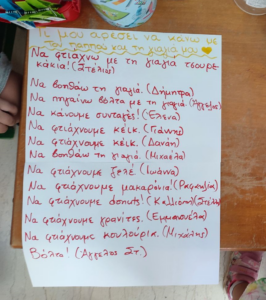 Τι μου αρέσει να κάνω με
τον παππού και τη γιαγιά μου
Να φτιάχνω με τη γιαγιά τσουρε-
κάκια! (Στέλιος)
Να βοηθάω τη γιαγιά. (Δήμητρα)
Να πηγαίνω βόλτα με τη γιαγιά. (Άγγελος)
Να κάνουμε συνταγές! (Έλενα)
Να φτιάχνουμε κέικ. (Γιάννης)
Να φτιάχνουμε κέικ. (Δανάη)
Να βοηθάω τη γιαγιά. (Μιχαέλα)
Να φτιάχνουμε ζελέ. (Ιωάννα)
Να φτιάχνουμε μακαρόνια! (Ραφαηλία)
Να φτιάχνουμε donuts! (Καλλιόπη) (Στέλλα)
Να φτιάχνουμε γρανίτες. (Εμμανουέλα)
Να φτιάχνουμε κουλούρια. (Μιχάλης)
Βόλτα! (Άγγελος Στ.)